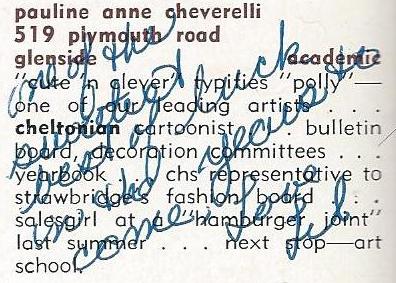 pauline anne cheverelli
519 plymouth road
glenside academic
"cute 'n clever" typifies "polly"—
one of our leading artists . . .
cheltonian cartoonist . . . bulletin
board, decoration committees . . .
yearbook . . . chs representative to
strawbridge's fashion board . . .
salesgirl at a "hamburger joint"
last summer . . . next stop—art
school.
one of the
best of luck
years to
come.
Love